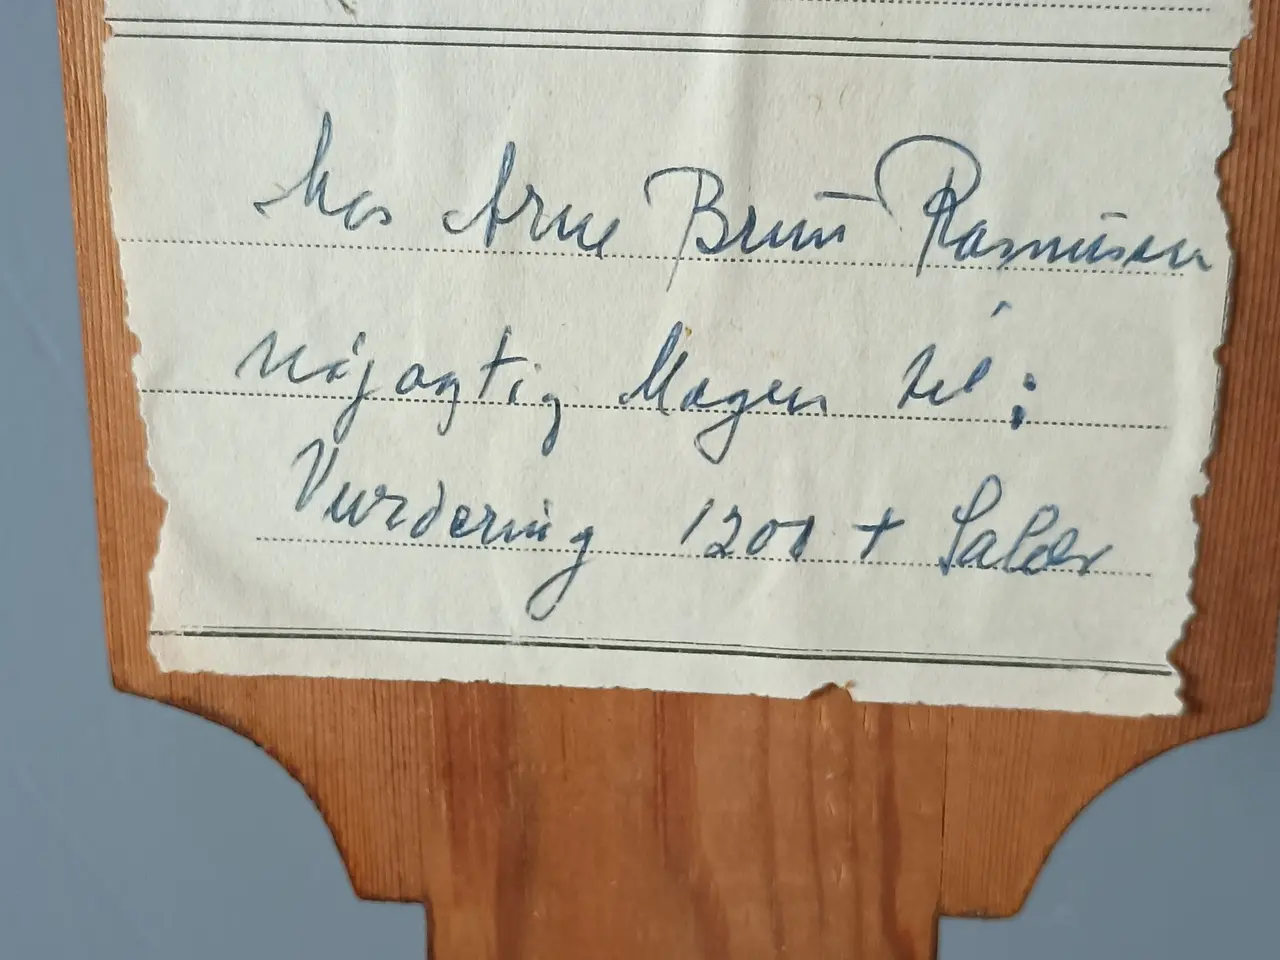 hos Arne Bruun Rasmussen
nøjagtig Magen til:
Vurdering 1200 + Salær